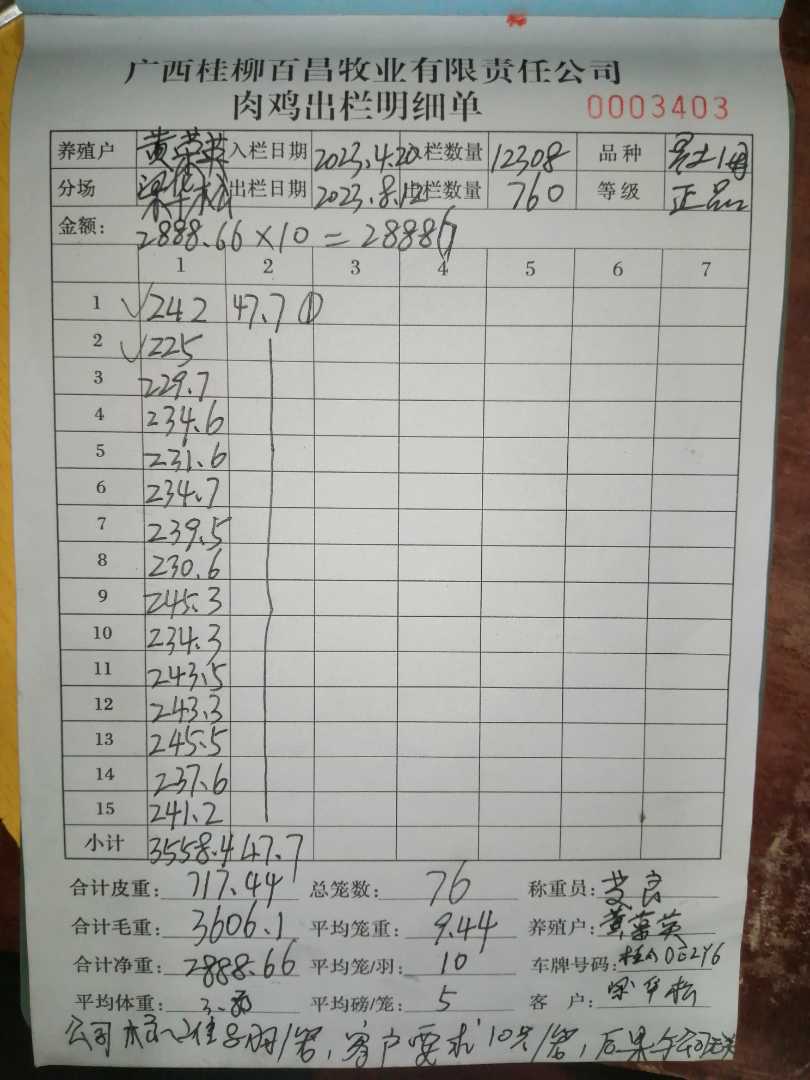 广西桂柳百昌牧业有限责任公司
肉鸡出栏明细单 0003403
养殖户 黄荣英 入栏日期 2023.4.20 入栏数量 12308 品种
分场 出栏日期 2023.8.12 出栏数量 760 等级 正品
金额: 2888.66×10=28886
1 2 3 4 5 6 7
1 √242 47.7 ①
2 √225
3 229.7
4 234.6
5 231.6
6 234.7
7 239.5
8 230.6
9 245.3
10 234.3
11 243.5
12 243.3
13 245.5
14 237.6
15 241.2
小计 3558.4 47.7
合计皮重: 717.44 总笼数: 76 称重员:
合计毛重: 3606.1 平均笼重: 9.44 养殖户: 黄荣英
合计净重: 2888.66 平均笼/羽: 10 车牌号码:
平均体重: 平均磅/笼: 5 客户:
公司 客户要求10只/笼,后果与公司无关